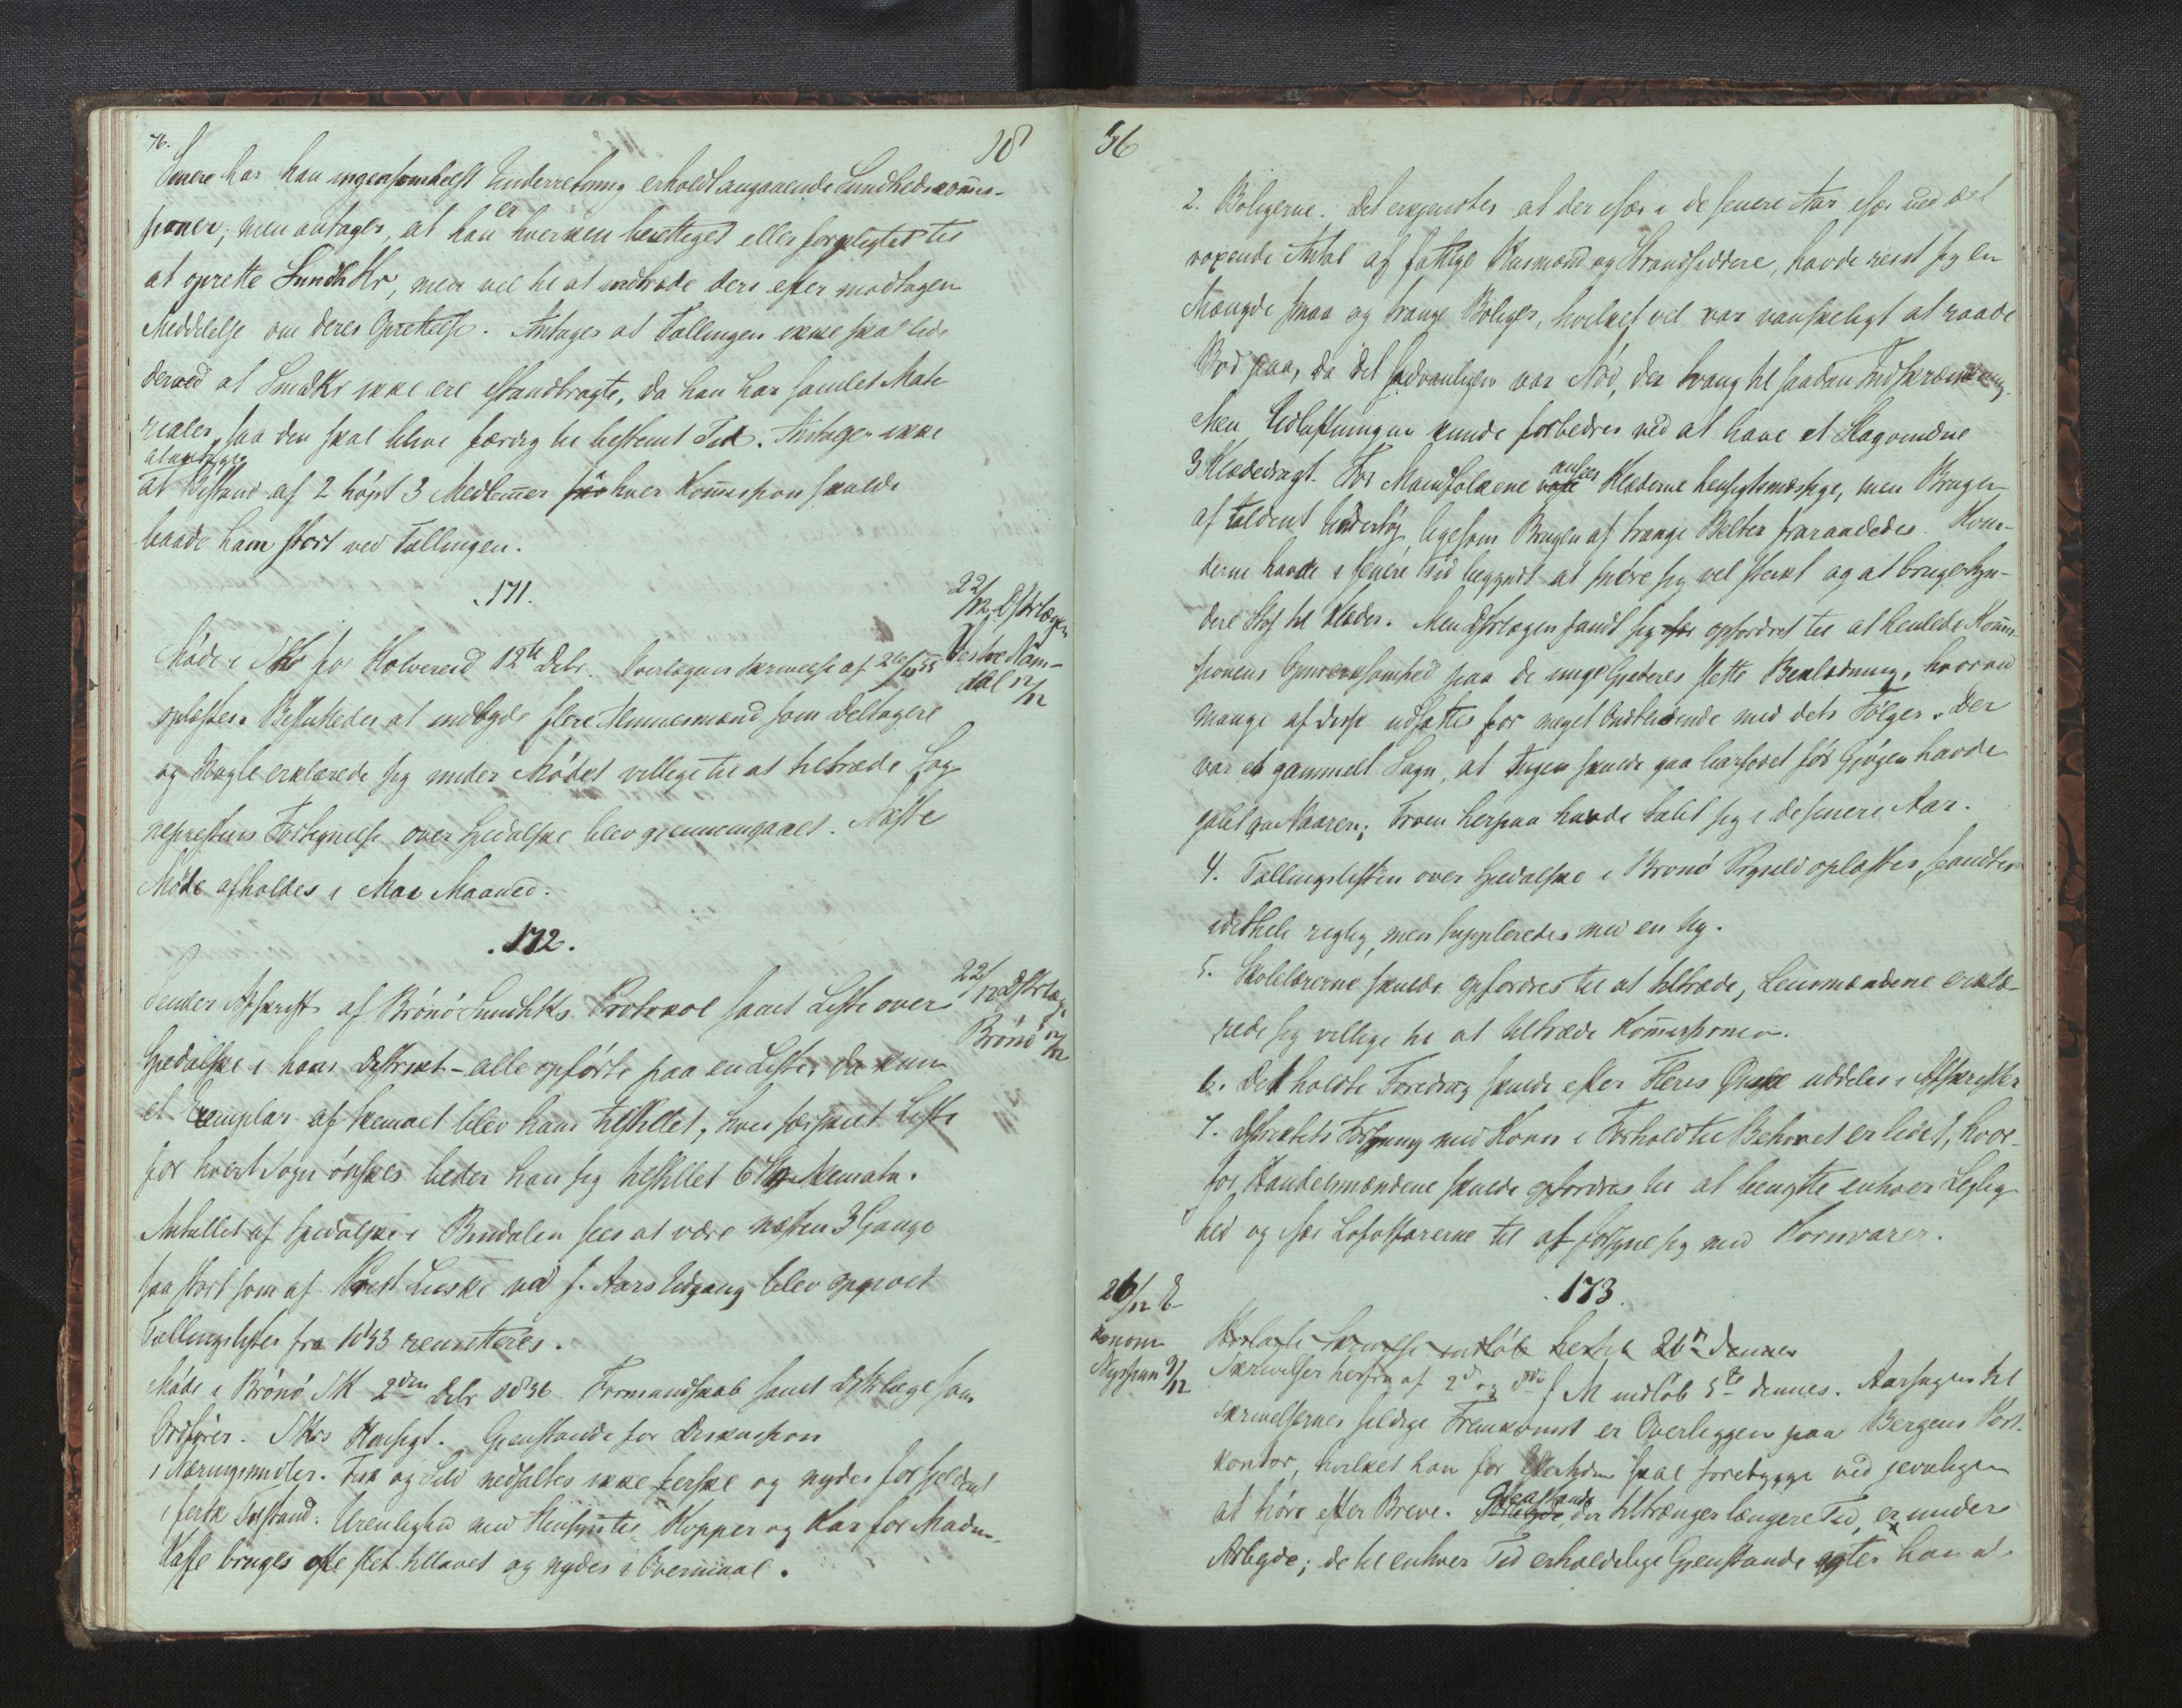 76.
18
Senere har han ingensomhelst Underretning erholdt angaaende Sundhedskommis-
sioner; men antager, at han er hverken berettiget eller forpligtet til
at oprette SundhKr, men vel til at indtræde deri efter modtagen
Meddelelse om deres Oprettelse. Antager at Tællingen ikke skal lide
derved at SundKr ikke ere istandbragte, da han har samlet Mate
rialer, saa den skal blive færdig til bestemt Tid. Antager ikke
at Bistand af 2 høist 3 Medlemmer hver Kommission skulde
baade ham stort ved Tællingen.
171.
22/12 Dstrlægen
Vestre Nam-
dal 12/12
Møde i SKr for Kolvereid 12te Debr. Overlægens Skrivelse af
oplæstes. Besluttedes at indbyde flere Almuesmænd som Deltagere
og Nogle erklærede sig under Mødet villige til at tiltræde. Sog
nepræstens Fortegnelse over Spedalske blev gjennemgaaet. Næste
Møde afholdes i Mai Maaned.
172.
22/12 Dstrlæg.
Brønø 12/12
Sender Afskrift af Brønø SundhKs Protokol samt Liste over
Spedalske i hans Distrikt - alle opførte paa en Liste, da kun
et Exemplar af Skemaet blev ham tilstillet, hvis særskilt Liste
for hvert Sogn ønskes beder han sig tilstillet 6 Skemata.
Antallet af Spedalske i Bindalen sees at være næsten 3 Gange
saa stort som af Præst ved f. Aars Udgang blev opgivet
Tællingslister fra 1853 remitteres.
Møde i Brønø SK 2den Debr 1856. Formandskab samt Dstrlæge som
Ordfører. SKs Hensigt. Gjenstande for Diskussion
1 Næringsmidler. Fisk og Sild nedsaltes ikke ferske og nydes for sjeldent
i fersk Tilstand. Urenlighed med Hensyn til Kopper og Kar for Maden.
Kaffe bruges ofte slet tillavet og nydes i Overmaal.
56
2. Boligerne. Det erkjendtes at der især i de senere Aar især ved det
voxende Antal af fattige Husmænd og Strandsiddere, havde reist sig en
Mængde smaa og trange Boliger, hvilket vel var vanskeligt at raade
Bod paa, da det sædvanligen var Nød, der tvang til saadan Indskrænkning.
Men Udluftningen kunde forbedres ved at have et Slagvindue
3 Klædedragt. For Mandfolkene ansees Klæderne hensigtsmæssige, men Brugen
af Uldent Undertøi, ligesom Brugen af trange Belter fraraadedes. Kvin-
derne havde i senere Tid begyndt at snøre sig vel sterkt og at bruge tyn-
dere Stof til Klæder. Men Dstrlægen fandt sig opfordret til at henlede Kommis-
sionens Opmærksomhed paa de unge Gjæteres slette Beklædning, hvorved
mange af disse udsattes for meget Ondtlidende med dets Følger. Der
var et gammelt Sagn, at Ingen skulde gaa barfodet før Gjøgen havde
galet om Vaaren; Troen herpaa havde tabt sig i de senere Aar.
4. Tællingslisten over Spedalske i Brønø Prgjeld oplæstes, fandtes
idethele rigtig, men suppleredes med en Ny.
5. Skolelærerne skulde opfordres til at tiltræde, Lensmændene erklæ-
rede sig villige til at tiltræde Kommissionen.
6. Det holdte Foredrag skulde efter Fleres Ønske uddeles i Afskrifter
7. Distriktets Forsyning med Korn i Forhold til Behovet er lidet, hvor-
for Handelsmændene skulde opfordres til at benytte enhver Leilig
hed og især Lofotfarerne til at forsyne sig med Kornvarer.
173.
26/12 Ø
konom
Nyssum 9/12
indløb hertil 26de dennes
Skrivelser herfra af 2de og f. M indløb 5te dennes. Aarsagen til
Skrivelsernes sildige Fremkomst er Overliggen paa Bergens Post
kontor, hvilket han for Eftertiden skal forebygge ved jevnligen
at høre efter Breve. Gjenstande, der tiltrænger længere Tid, er under
Arbeide; de til enhver Tid erholdelige Gjenstande agter han at